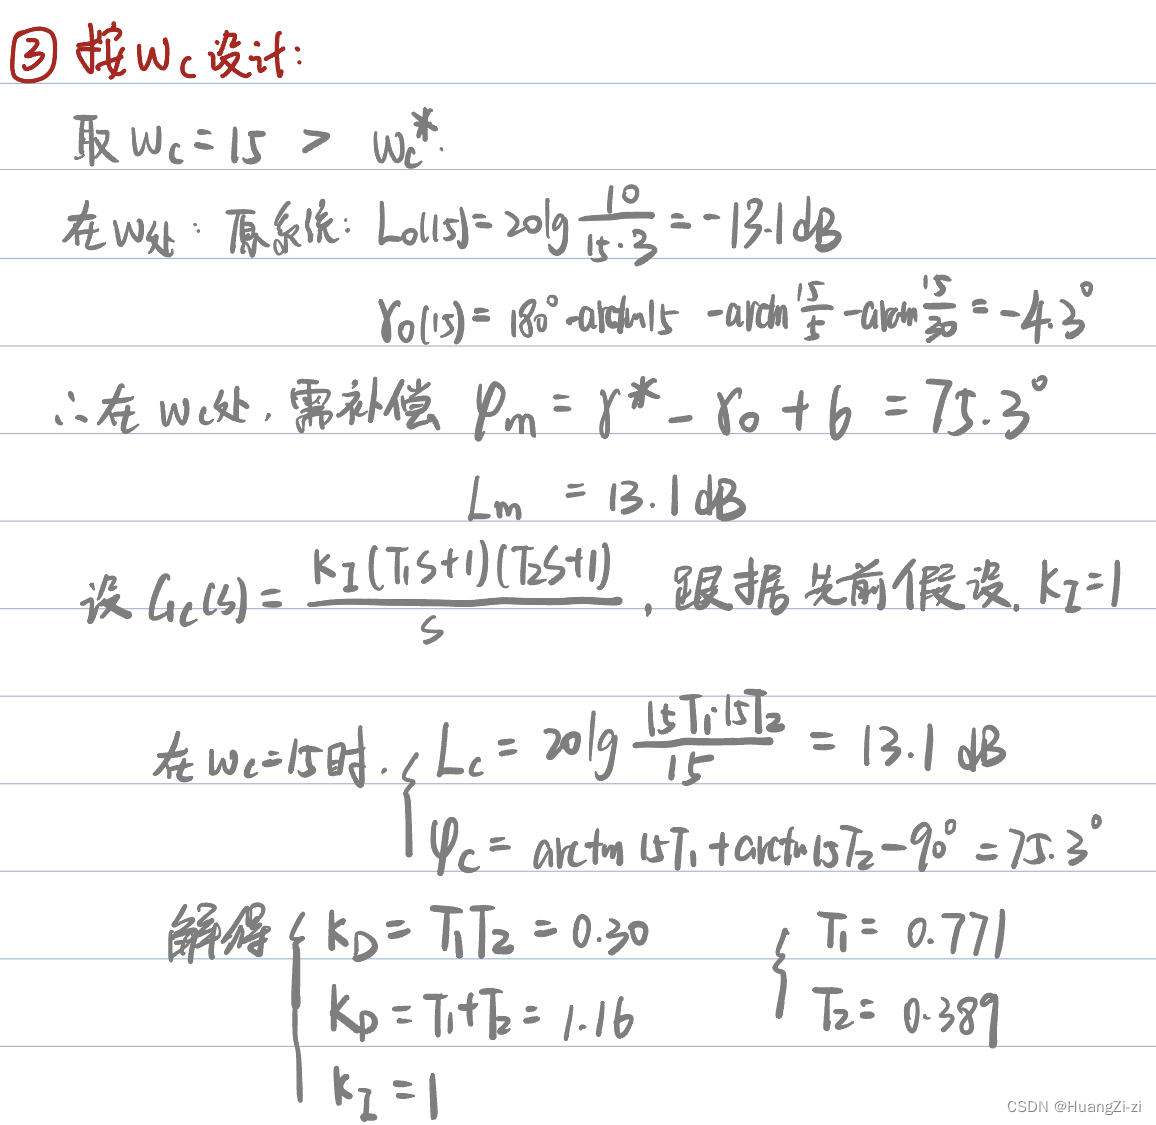 ③ 按Wc设计:
取 Wc = 15 > Wc*.
在W处: 原系统: L₀(15) = 20lg 10/(15·3) = -13.1dB
γ₀(15) = 180° - arctan15 - arctan 15/5 - arctan 15/30 = -4.3°
∴在 Wc处, 需补偿 φm = γ* - γ₀ + 6 = 75.3°
Lm = 13.1dB
设 Gc(s) = K_I(T₁s+1)(T₂s+1)/s , 跟据先前假设, K_I = 1
在 Wc=15时. { Lc = 20lg 15T₁·15T₂/15 = 13.1 dB
φc = arctan 15T₁ + arctan 15T₂ - 90° = 75.3°
解得 { K_D = T₁T₂ = 0.30 { T₁ = 0.771
K_P = T₁+T₂ = 1.16 T₂ = 0.389
K_I = 1
CSDN @HuangZi-zi